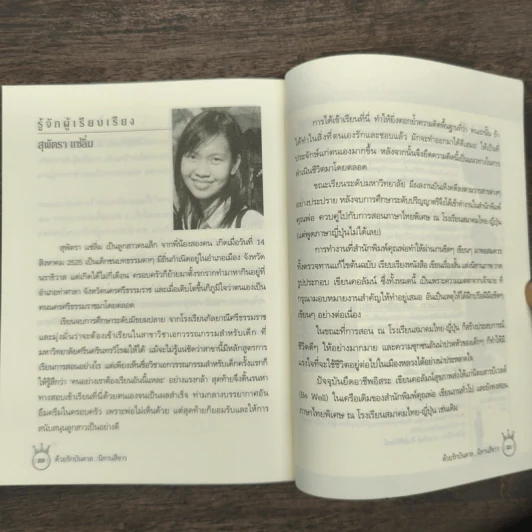 รู้จักผู้เรียบเรียง
สุพัตรา แซ่ลิ่ม
สุพัตรา แซ่ลิ่ม เป็นลูกสาวคนเล็ก จากพี่น้องสองคน เกิดเมื่อวันที่ 14
สิงหาคม 2525 เป็นเด็กชอบทะเล มีถิ่นกำเนิดอยู่ในอำเภอเมือง จังหวัด
นราธิวาส แต่เกิดได้ไม่กี่เดือน ครอบครัวก็ย้ายมาตั้งรกรากทำมาหากินอยู่ที่
อำเภอท่าศาลา จังหวัดนครศรีธรรมราช และเมื่อเติบโตขึ้นก็ภูมิใจว่าตนเองเป็น
คนนครศรีธรรมราชมาโดยตลอด
เรียนจบการศึกษาระดับมัธยมปลาย จากโรงเรียนกัลยาณีศรีธรรมราช
และมุ่งมั่นว่าจะต้องเข้าเรียนในสาขาวิชาเอกวรรณกรรมสำหรับเด็ก ที่
มหาวิทยาลัยศรีนครินทรวิโรฒให้ได้ แม้จะไม่รู้แน่ชัดว่าสาขานี้มีหลักสูตรการ
เรียนการสอนอย่างไร แต่เพียงเห็นชื่อวิชาเอกวรรณกรรมสำหรับเด็กครั้งแรกก็
ให้รู้สึกว่า 'คนอย่างเราต้องเรียนอันนี้แหละ' อย่างแรงกล้า สุดท้ายจึงดิ้นรนหา
ทางสอบเข้าเรียนที่นี่ด้วยตนเองจนเป็นผลสำเร็จ ท่ามกลางบรรยากาศอัน
อึมครึมในครอบครัว เพราะพ่อไม่เห็นด้วย แต่สุดท้ายก็ยอมรับและให้การ
สนับสนุนลูกสาวเป็นอย่างดี
ด้วยรักบันดาล..นิทานสีขาว
การได้เข้าเรียนที่นี่ ทำให้ยิ่งตอกย้ำความคิดพื้นฐานที่ว่า คนเรานั้น ถ้า
ได้ทำในสิ่งที่ตนเองรักและชอบแล้ว มักจะทำออกมาได้ดีเสมอ ได้เป็นที่
ประจักษ์แก่ตนเองมากขึ้น หลังจากนั้นจึงยึดความคิดนี้เป็นแนวทางในการ
ดำเนินชีวิตมาโดยตลอด
ขณะเรียนระดับมหาวิทยาลัย มีผลงานบันเทิงคดีลงตามวารสารต่างๆ
อย่างประปราย หลังจบการศึกษาระดับปริญญาตรีจึงได้เข้าทำงานในสำนักพิมพ์
คุณพ่อ ควบคู่ไปกับการสอนภาษาไทยพิเศษ ณ โรงเรียนสมาคมไทย-ญี่ปุ่น
(แต่พูดภาษาญี่ปุ่นไม่ได้เลย)
การทำงานที่สำนักพิมพ์คุณพ่อทำให้ผ่านงานขีดๆ เขียนๆ มาพอสมควร
ทั้งตรวจทานแก้ไขต้นฉบับ เรียบเรียงหนังสือ เขียนเรื่องสั้น
รูปประกอบ เขียนคอลัมน์ ซึ่งทั้งหมดนี้ เป็นเพราะความเมตตาจากเจ้านาย ที่
กรุณามอบหมายงานสำคัญให้ทำอยู่เสมอ อันเป็นเหตุให้ได้ฝึกปรือฝีมือขีดๆ
เขียนๆ อย่างต่อเนื่อง
ในขณะที่การสอน ณ โรงเรียนสมาคมไทย-ญี่ปุ่น ก็สร้างประสบการณ์
ชีวิตดีๆ ให้อย่างมากมาย และความซุกซนอันน่าปวดหัวของเด็กๆ ก็ทำให้มี
แรงใจที่จะใช้ชีวิตอยู่ต่อไปในเมืองหลวงได้อย่างน่าประหลาดใจ
ปัจจุบันยึดอาชีพอิสระ เขียนคอลัมน์สุขภาพลงให้แก่นิตยสารบีเวลล์
(Be Well) ในเครือเดิมของสำนักพิมพ์คุณพ่อ เขียนงานทั่วไป และยังคงสอน
ภาษาไทยพิเศษ ณ โรงเรียนสมาคมไทย-ญี่ปุ่น เช่นเดิม
ด้วยรักบันดาล..นิทานสีขาว